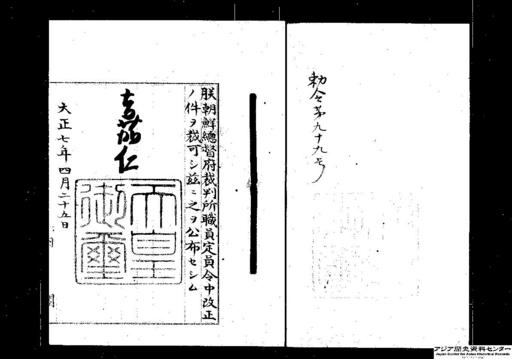 勅令第九十九号
朕朝鮮總督府裁判所職員定員令中改正
ノ件ヲ裁可シ茲ニ之ヲ公布セシム
嘉仁
天皇御璽
大正七年四月二十五日
内閣
アジア歴史資料センター
Japan Center for Asian Historical Records